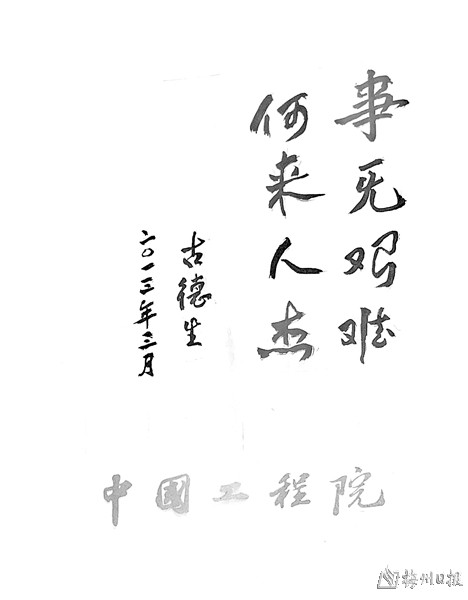 事无艰难
何来人杰
古德生
二〇一三年三月
中國工程院
梅州日报